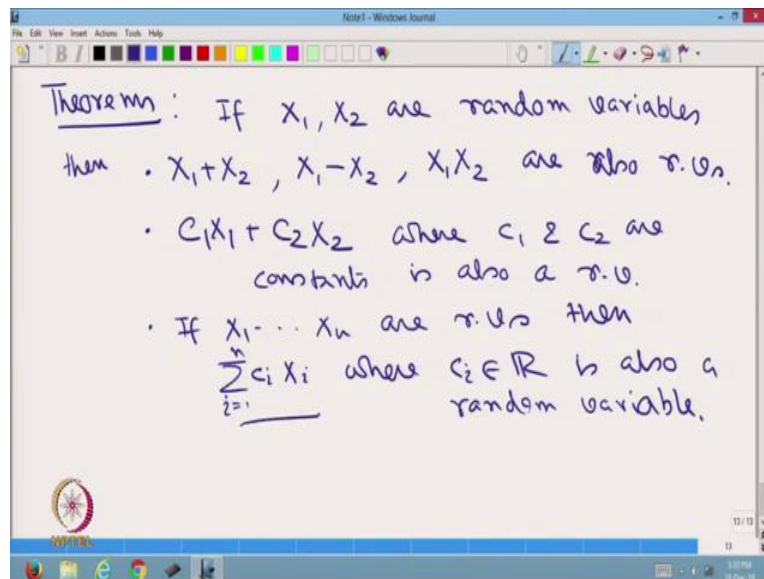 Note1 - Windows Journal
File Edit View Insert Actions Tools Help
Theorems : If X₁, X₂ are random variables
then • X₁+X₂ , X₁-X₂ , X₁X₂ are also r.vs.
• C₁X₁ + C₂X₂ where c₁ & c₂ are
constants is also a r.v.
• If X₁ ... Xₙ are r.vs then
∑ⁿᵢ₌₁ cᵢ Xᵢ where cᵢ ∈ ℝ is also a
random variable.
NPTEL
13 / 13
13